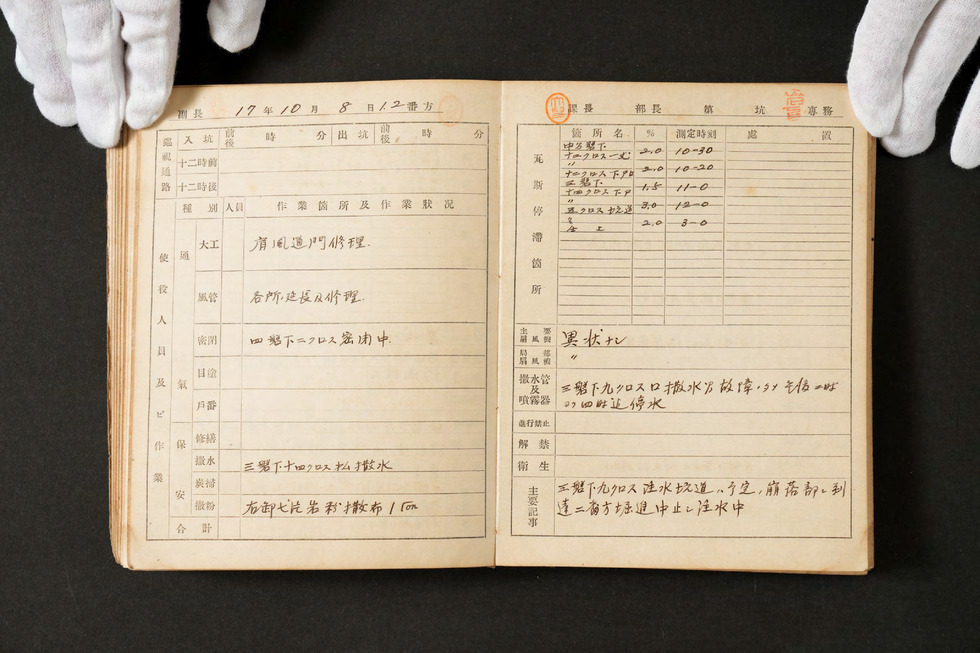 副長 17年10月8日12番方
監視通路 入坑 前後 時 分 出坑 前後 時 分
十二時前
十二時後
使役人員及ビ作業
種別 人員 作業箇所及作業状况
通氣
大工 肩風道門修理.
風管 各所延長及修理.
密閉 四盤下二クロス密閉中.
目塗
戸番
保安
修繕
撒水 三盤下十四クロス払撒水
炭掃
撒粉 右卸七片岩粉撒布150m
合計
課長 部長 第 坑 專務
瓦斯停滯箇所
箇所名 % 測定時刻 處置
十二クロス 2.0 10-30
〃
十二クロス下 2.0 10-20
三盤下
十四クロス下 1.5 11-0
〃
五クロス坑道 3.0 12-0
仝上 2.0 3-0
主要扇風機 異状ナシ
局部扇風機 〃
撒水管及噴霧器 三盤下九クロス口撒水管故障ノタメ午後二時
ヨリ四時迄停水
進行禁止
解禁
衛生
主要記事 三盤下九クロス注水坑道ハ予定ノ崩落部ニ到
達二番方掘進中止シ注水中